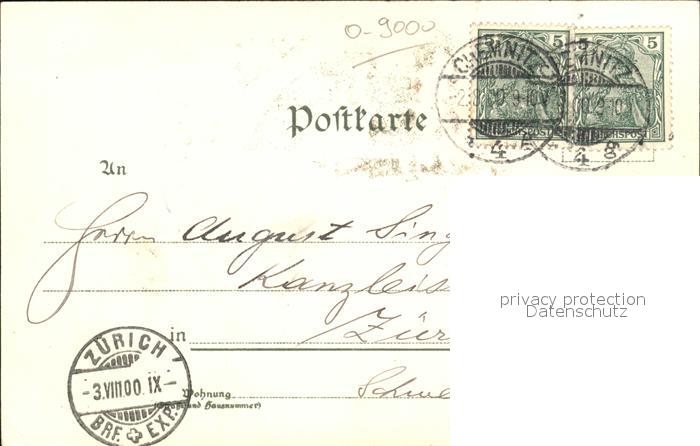 0-9000
5 5
CHEMNITZ CHEMNITZ
REICHSPOST REICHSPOST
4 4 g
Postkarte
An
Herrn August Sing
Kanzleis
privacy protection
Datenschutz
in Zür
ZÜRICH
-3.VIII.00.IX-
BRF. EXP.
Wohnung
(Straße und Hausnummer)
Schwe